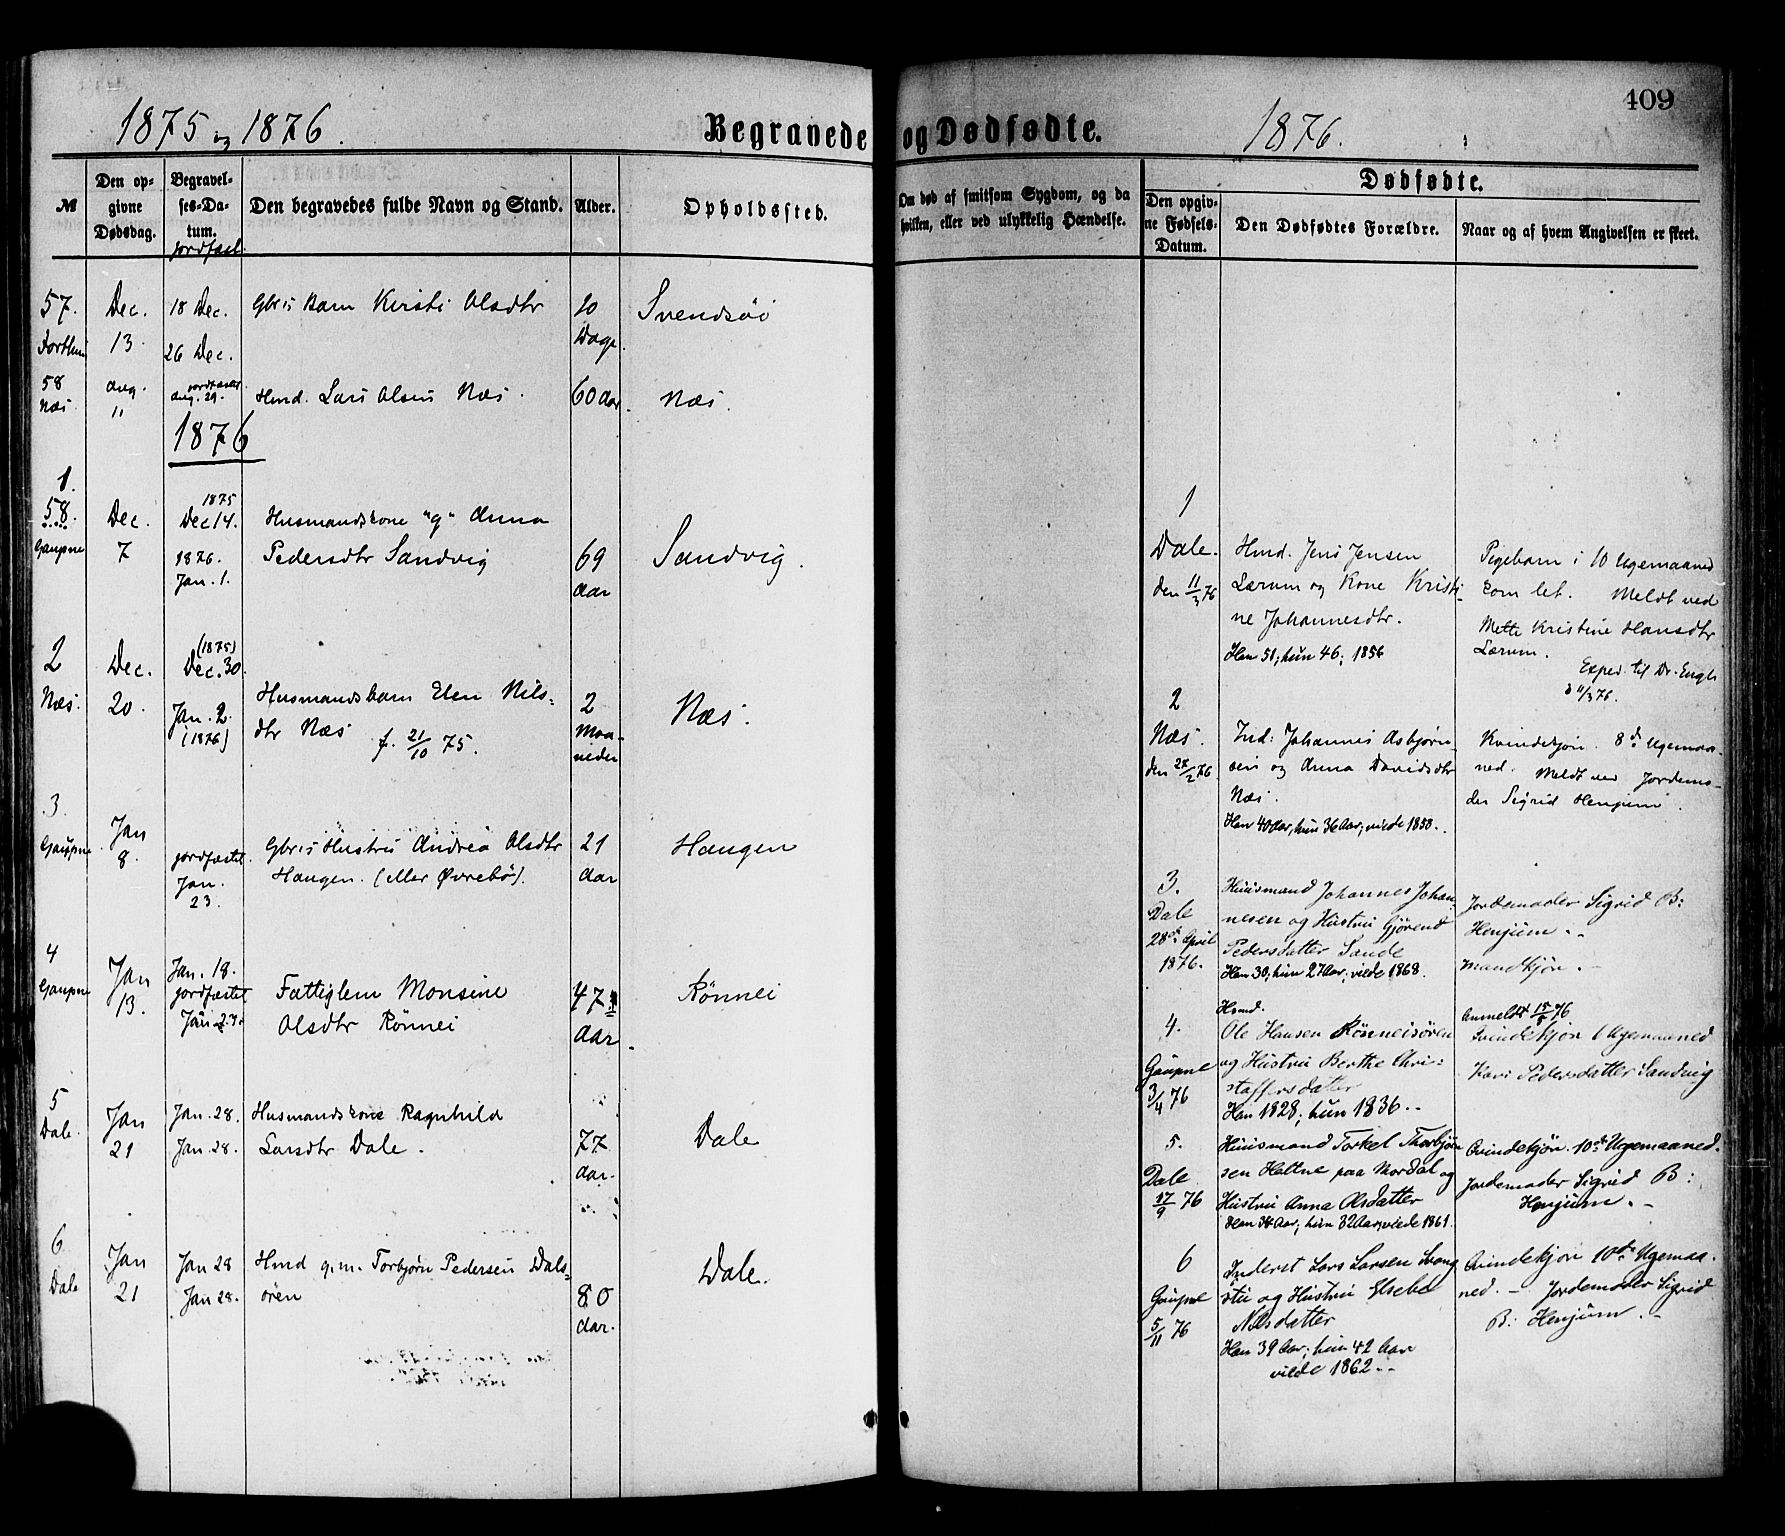 1875 og 1876.
Begravede
№
Den op-
givne
Dødsdag.
Begravel-
ses-Da-
tum.
jordfæst
Den begravedes fulde Navn og Stand.
Alder.
Opholdssted.
57.
Dec.
13.
18 Dec.
26 Dec.
Gbrs Barn Kirsti Olsdtr
20
Dage.
Svendsøi
58
Næs
Aug.
11
jordfæstet
Aug. 29.
Hmd. Lars Olsen Næs.
60 Aar.
Næs.
1876
1.
58.
Gaupne
Dec.
7
1875
Dec 14.
1876.
Jan. 1.
Husmandskone "g" Anna
Pedersdtr Sandvig
69
Aar
Sandvig.
2
Næs.
Dec.
20.
(1875)
Dec. 30
Jan. 2.
(1876)
Husmandsbarn Elen Nils-
dtr Næs f. 21/10 75.
2
Maa-
neder
Næs.
3.
Gaupne
Jan
8.
jordfæstet
Jan.
23.
Gbrs Hustru Andrea Olsdtr
Haugen. (eller Øvrebø).
21
Aar
Haugen
4
Gaupne
Jan
13.
Jan. 18.
jordfæstet
Jan 23.
Fattiglem Monsine
Olsdtr Rönnei
47
Aar.
Rönnei
5
Dale.
Jan
21
Jan. 28.
Jan. 28.
Husmandskone Ragnhild
Larsdtr Dale.
77
Aar.
Dale
6
Dale
Jan
21
Jan 28
Jan 28.
Hmd g.m. Torbjørn Pedersen Dals-
ören
80
Aar.
Dale.
og Dødfødte.
1876.
409
Om død af smitsom Sygdom, og da
hvilken, eller ved ulykkelig Hændelse.
Dødfødte.
Den opgiv-
ne Fødsels-
Datum.
Den Dødfødtes Forældre.
Naar og af hvem Angivelsen er skeet.
1
Dale.
den 11/3 76
Hmd. Jens Jensen
Lærum og Kone Kristi-
ne Johannesdtr.
Han 51; hun 46; 1856
Pigebarn i 10 Ugemaaned
kom let. Meldt ved
Mette Kristine Hansdtr
Lærum.
Exped. til Dr. Engh
2
Næs.
den 28/2 76
Ind: Johannes Asbjørn-
sen og Anna Davidsdtr
Næs.
Han 40 Aar, hun 36 Aar; viede 1858.
Kvindekjøn. 8de Ugemaa-
ned. Meldt ved Jordemo-
der Sigrid Henjum.
3.
Dale
28de April
1876.
Huusmand Johannes Johan-
nesen og Hustru Gjørend
Pedersdatter Sande
Han 30; hun 27 Aar; viede 1868.
Jordemoder Sigrid B:
Henjum.-
Mandkjøn.-
4.
Gaupne
3/4 76
Hsmd.
Ole Hansen Rönneisören
og Hustru Berthe Chri-
stoffersdatter
Han 1828; hun 1836.-
Anmeldt 15/5 76
Qvindekjön Ugemaaned
Kari Pedersdatter Sandvig
5.
Dale
17/9 76
Huusmand Torkel Thorbjørn
sen Heltne paa Mordal og
Hustru Anna Olsdatter
Han 34 Aar; hun 32 Aar; viede 1861.
Qvindekjøn. 10de Ugemaaned.
Jordemoder Sigrid B:
Henjum.-
6
Gaupne
5/11 76
Inderst Lars Larsen Svang
stu og Hustru Elsebe
Nilsdatter
Han 39 Aar; hun 42 Aar
viede 1862.-
Qvindekjøn 10de Ugemaa-
ned.- Jordemoder Sigrid
B: Henjum.-